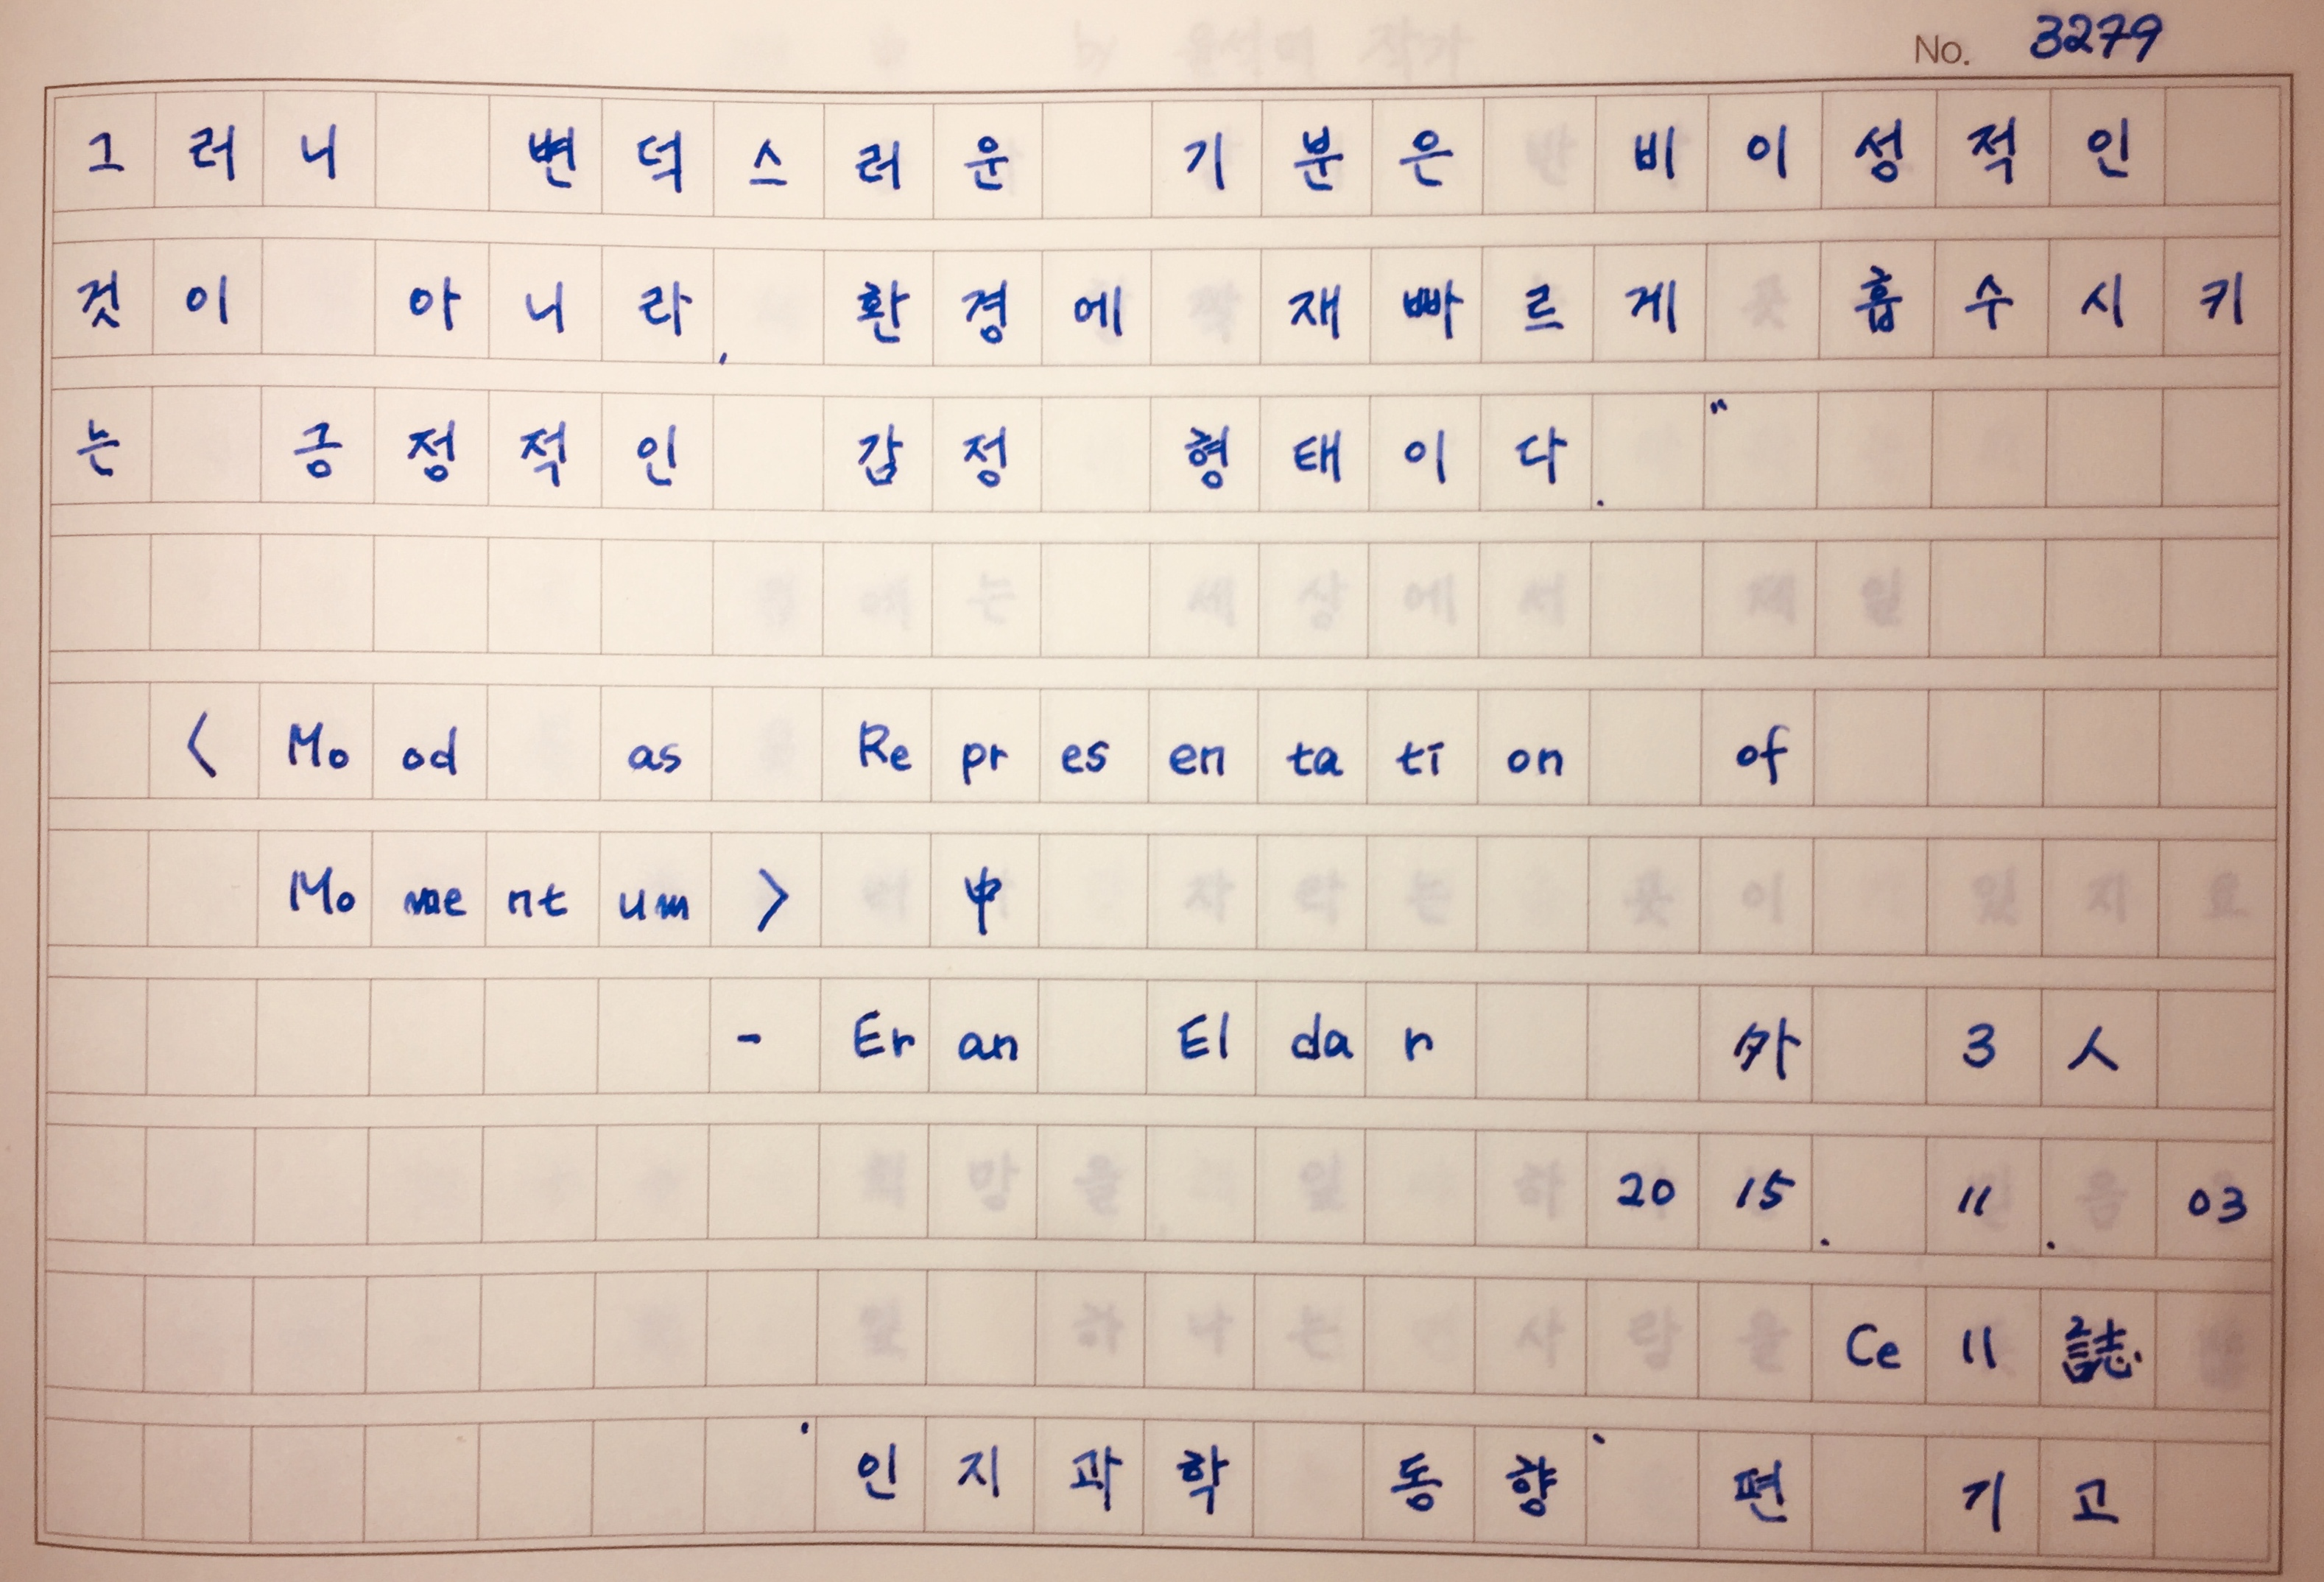 No. 3279
그러니 변덕스러운 기분은 비이성적인
것이 아니라, 환경에 재빠르게 흡수시키
는 긍정적인 감정 형태이다."
<Mood as Representation of
Momentum> 中
- Eran Eldar 外 3人
2015. 11. 03
Cell 誌
'인지과학 동향' 편 기고